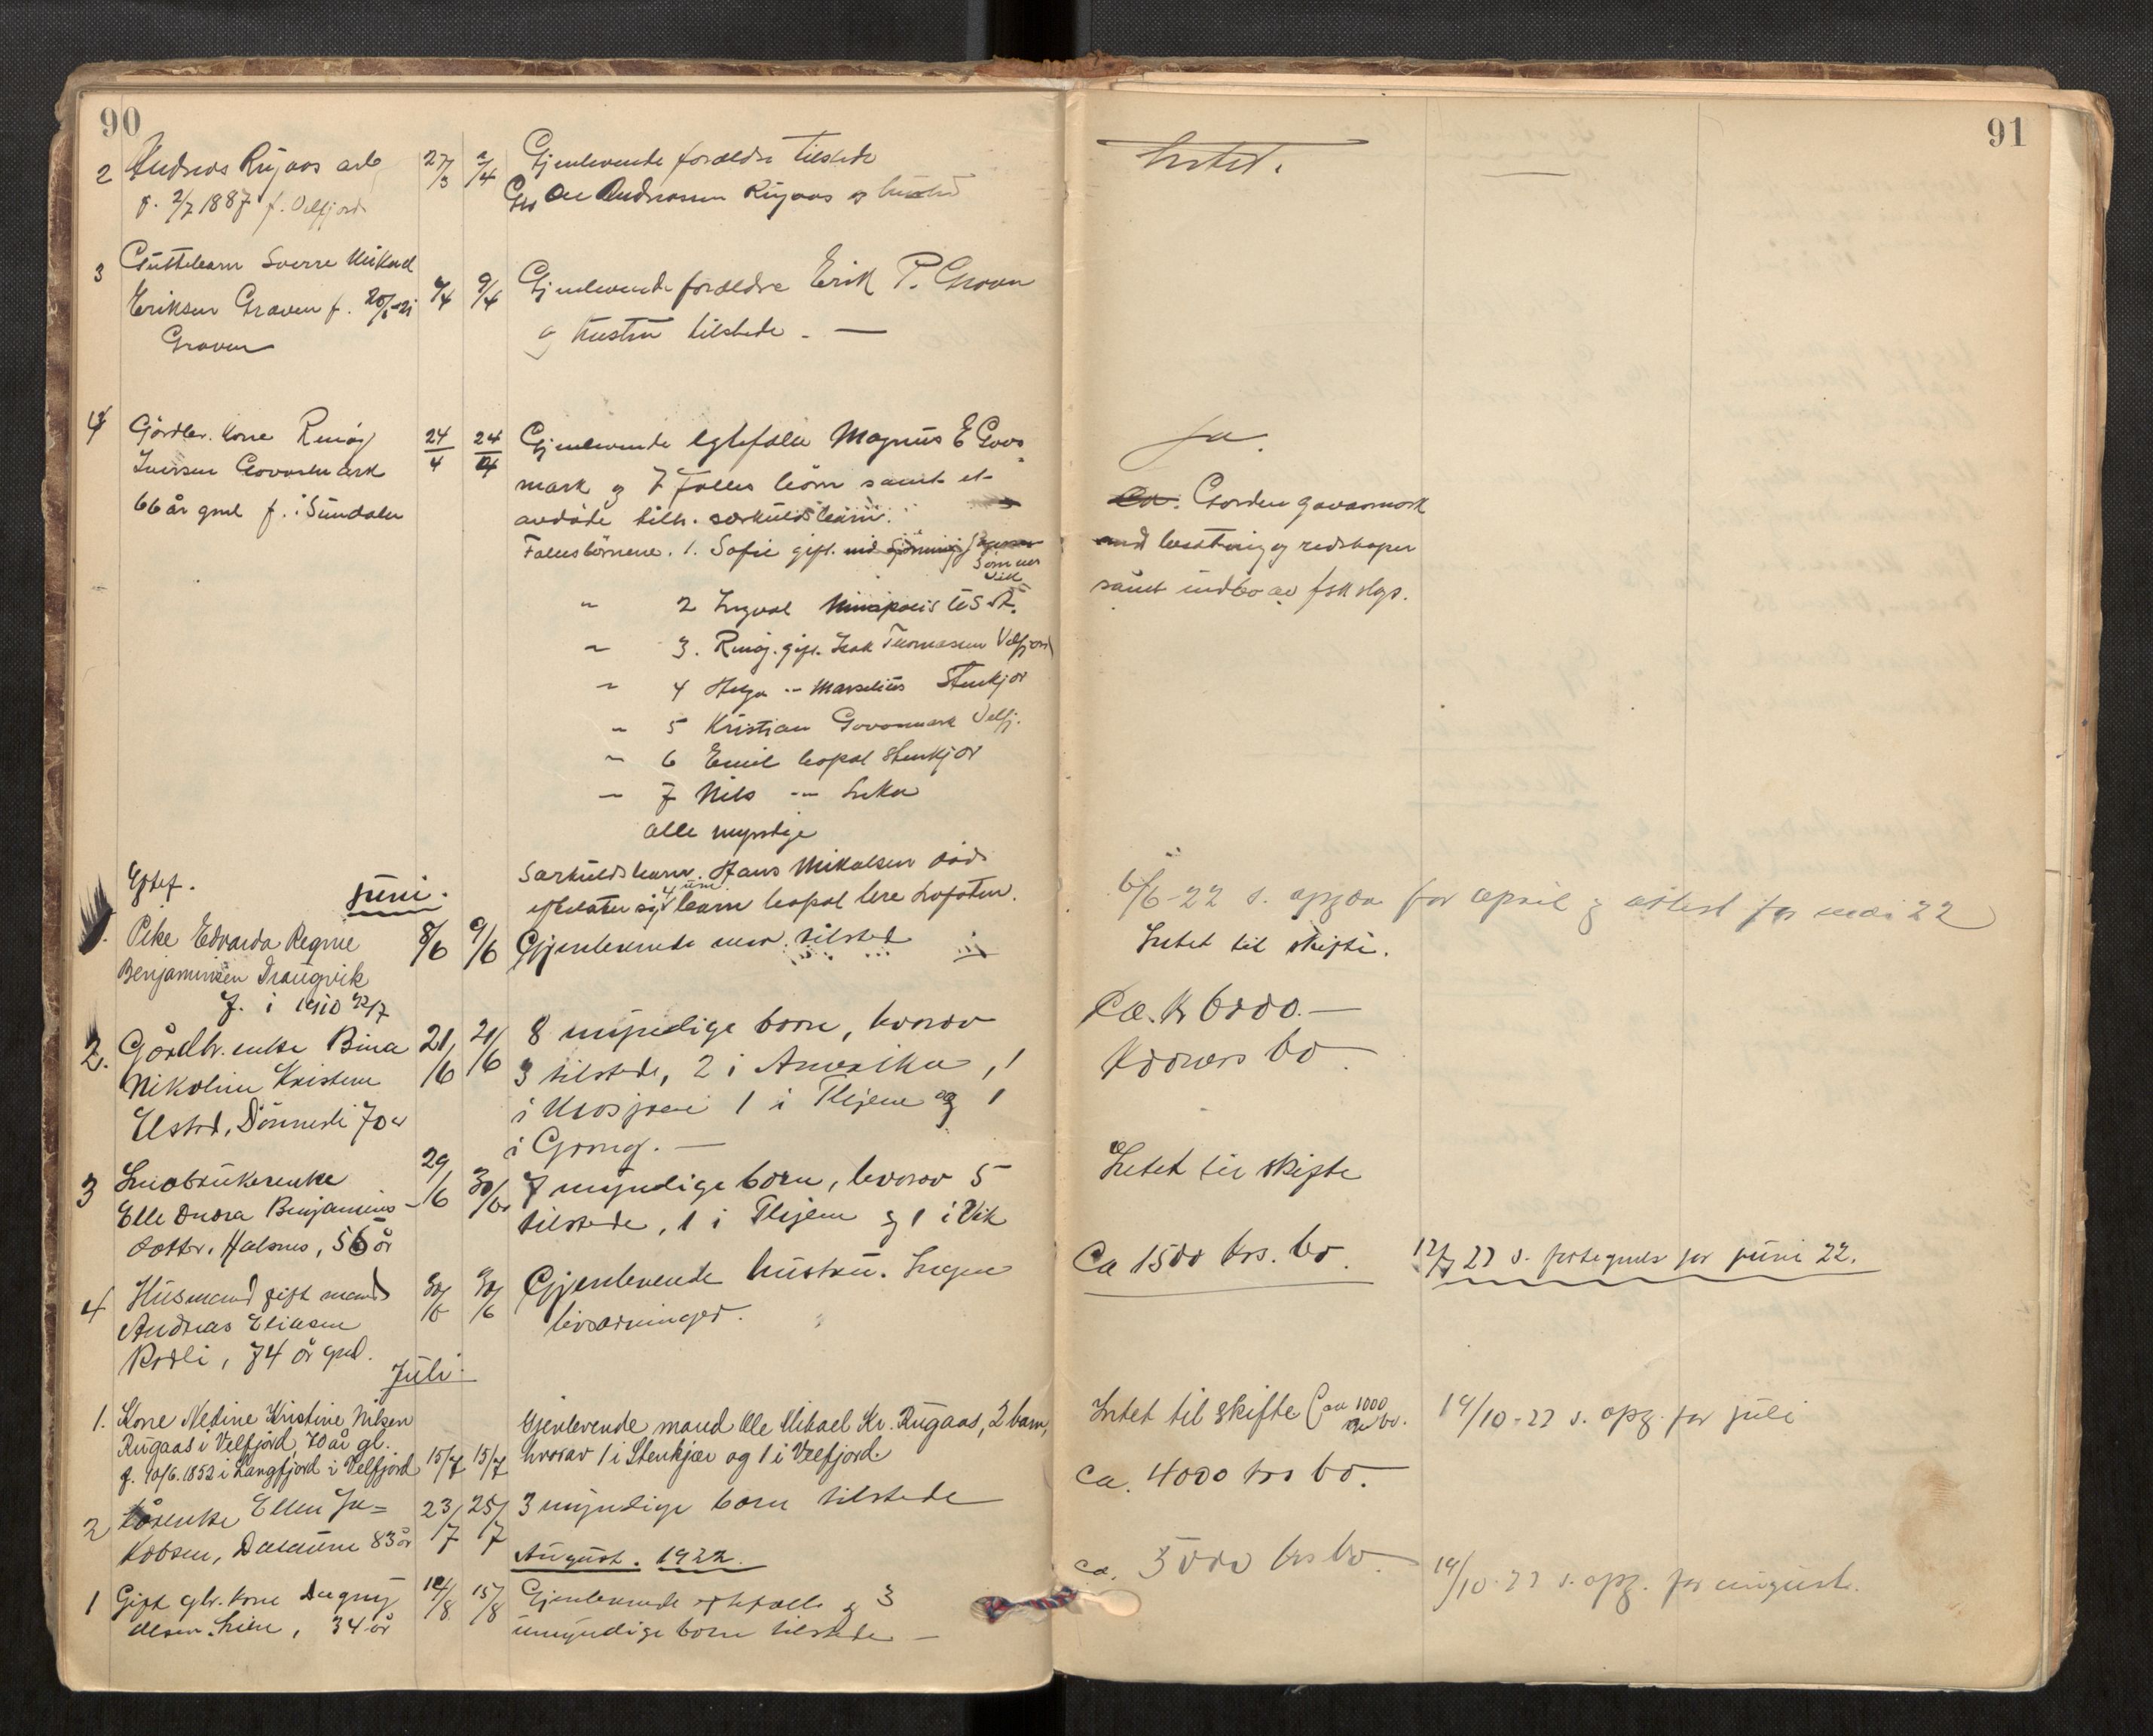 90
2 Andreas Rugaas arb
f. 2/7 1887 f. Velfjord
27/3 2/4
Gjenlevende forældre tilstede
Ole Andreassen Rugaas og hustru
3 Guttebarn Sverre Mikael
Eriksen Graven f. 20/5-21
Graven
7/4 9/4
Gjenlevende forældre Erik P. Graven
og hustru tilstede. —
4 Gårdbr. kone Remöy
Iversen Govasmark
66 år gml f. i Sundalen
24/4 24/4
Gjenlevende egtefælle Magnus E Govas
mark og 7 fælles börn samt et
avdöde tilh. særkuldsbarn.
Fællesbörnene. 1. Sofie gift.
" 2 Ingval Minapolis U.S.A.
" 3. Remöy. gift. Isak Thomassen Velfjord
" 4 Helga " Marselius Stenkjær
" 5 Kristian Govasmark Velfj.
" 6 Emil bopæl Stenkjær
" 7 Nils " Leka
alle myndige
Særkuldsbarn. Hans Mikalsen död
efterlater sig 4 um. barn bopæl Lofoten.
Eftef.
Juni.
1. Pike Edvarda Regine
Benjaminsen Draugvik
f. i 1910 22/7
8/6 9/6
Gjenlevende mor tilsted
2. Gårdbr. enke Bina
Nikoline Kristine
Elstad, Dönneli 70 år
21/6 21/6
8 myndige barn, hvorav
3 tilstede, 2 i Amerika, 1
i Mosjøen 1 i Tlgjem og 1
i Grong. —
3 Småbrukerenke
Elle Andrea Benjamins-
datter, Halsnes, 56 år
29/6 30/6
7 myndige barn, hvorav 5
tilstede, 1 i og 1 i Vik
4 Husmand gift mand
Andreas Eliasen
Rodli, 74 år gml.
30/6 30/6
Gjenlevende hustru. Ingen
livsarvinger.
Juli.
1. Kone Netine Kristine Nilsen
Rugaas i Velfjord, 70 år gl.
f. 10/6. 1852 i Langfjord i Velfjord
15/7 15/7
Gjenlevende mand Ole Mikael Kr. Rugaas, 2 barn,
hvorav 1 i Stenkjær og 1 i Velfjord.
2 Kårenke Ellen Ja=
kobsen, 83 år
23/7 25/7
3 myndige barn tilstede
August. 1922.
1 Gift gbr. kone Dagny
Olsen Lien, 34 år
14/8 15/8
Gjenlevende egtefælle og 3
umyndige barn tilstede —
91
Intet.
Ja.
Gården Govasmark
med besetning og redskaper
samt indbo av
6/6-22 s. opgave for april og attest for mai 22
Intet til skifte.
Ca. kr 6000.—
Kroners bo.
Intet til skifte
Ca 1500 krs. bo.
12/7 22 s. fortegnels for juni 22.
Intet til skifte (ca 1000 kr bo.
14/10-22 s. opg. for juli
ca. 4000 krs bo.
ca. 5000 krs bo.
14/10-22 s. opg. for august.